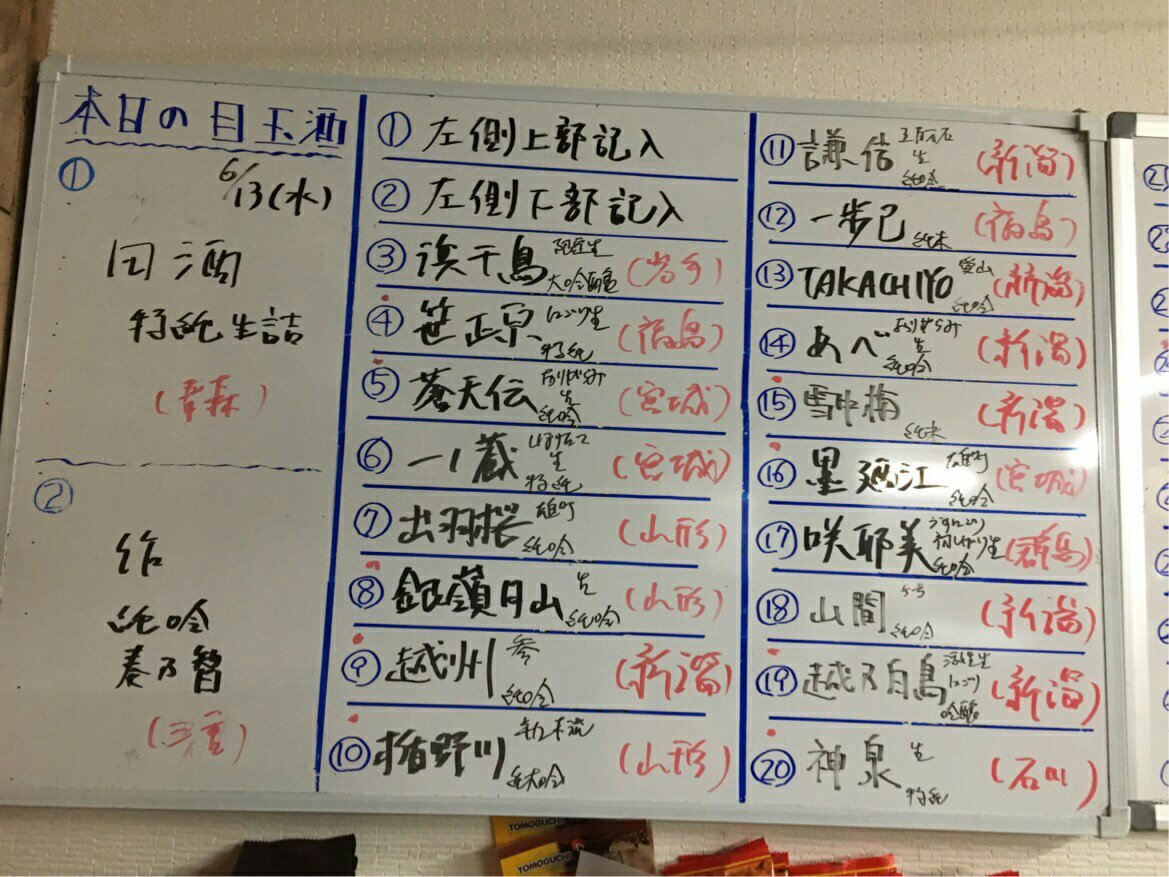 本日の目玉酒
①
6/13(水)
田酒
特純生詰
(青森)
②
作
純吟
奏乃智
(三重)
① 左側上部記入
② 左側下部記入
③ 浜千鳥 限定生 大吟醸 (岩手)
④ 笹正宗 にごり生 特純 (福島)
⑤ 蒼天伝 おりがらみ 生 純吟 (宮城)
⑥ 一ノ蔵 生 特純 (宮城)
⑦ 出羽桜 雄町 純吟 (山形)
⑧ 銀嶺月山 生 純吟 (山形)
⑨ 越州 参 純吟 (新潟)
⑩ 楯野川 純大吟 (山形)
⑪ 謙信 五百万石 生 純吟 (新潟)
⑫ 一歩己 純米 (福島)
⑬ TAKACHIYO 愛山 純吟 (新潟)
⑭ あべ おりがらみ 生 純吟 (新潟)
⑮ 雪中梅 純米 (新潟)
⑯ 墨廼江 雄町 純吟 (宮城)
⑰ 咲耶美 うすにごり 生 純吟 (群馬)
⑱ 山間 5号 純吟 (新潟)
⑲ 越乃白鳥 活性生 にごり 吟醸 (新潟)
⑳ 神泉 生 特純 (石川)
TOMOGUCHI
TOMOGUCHI